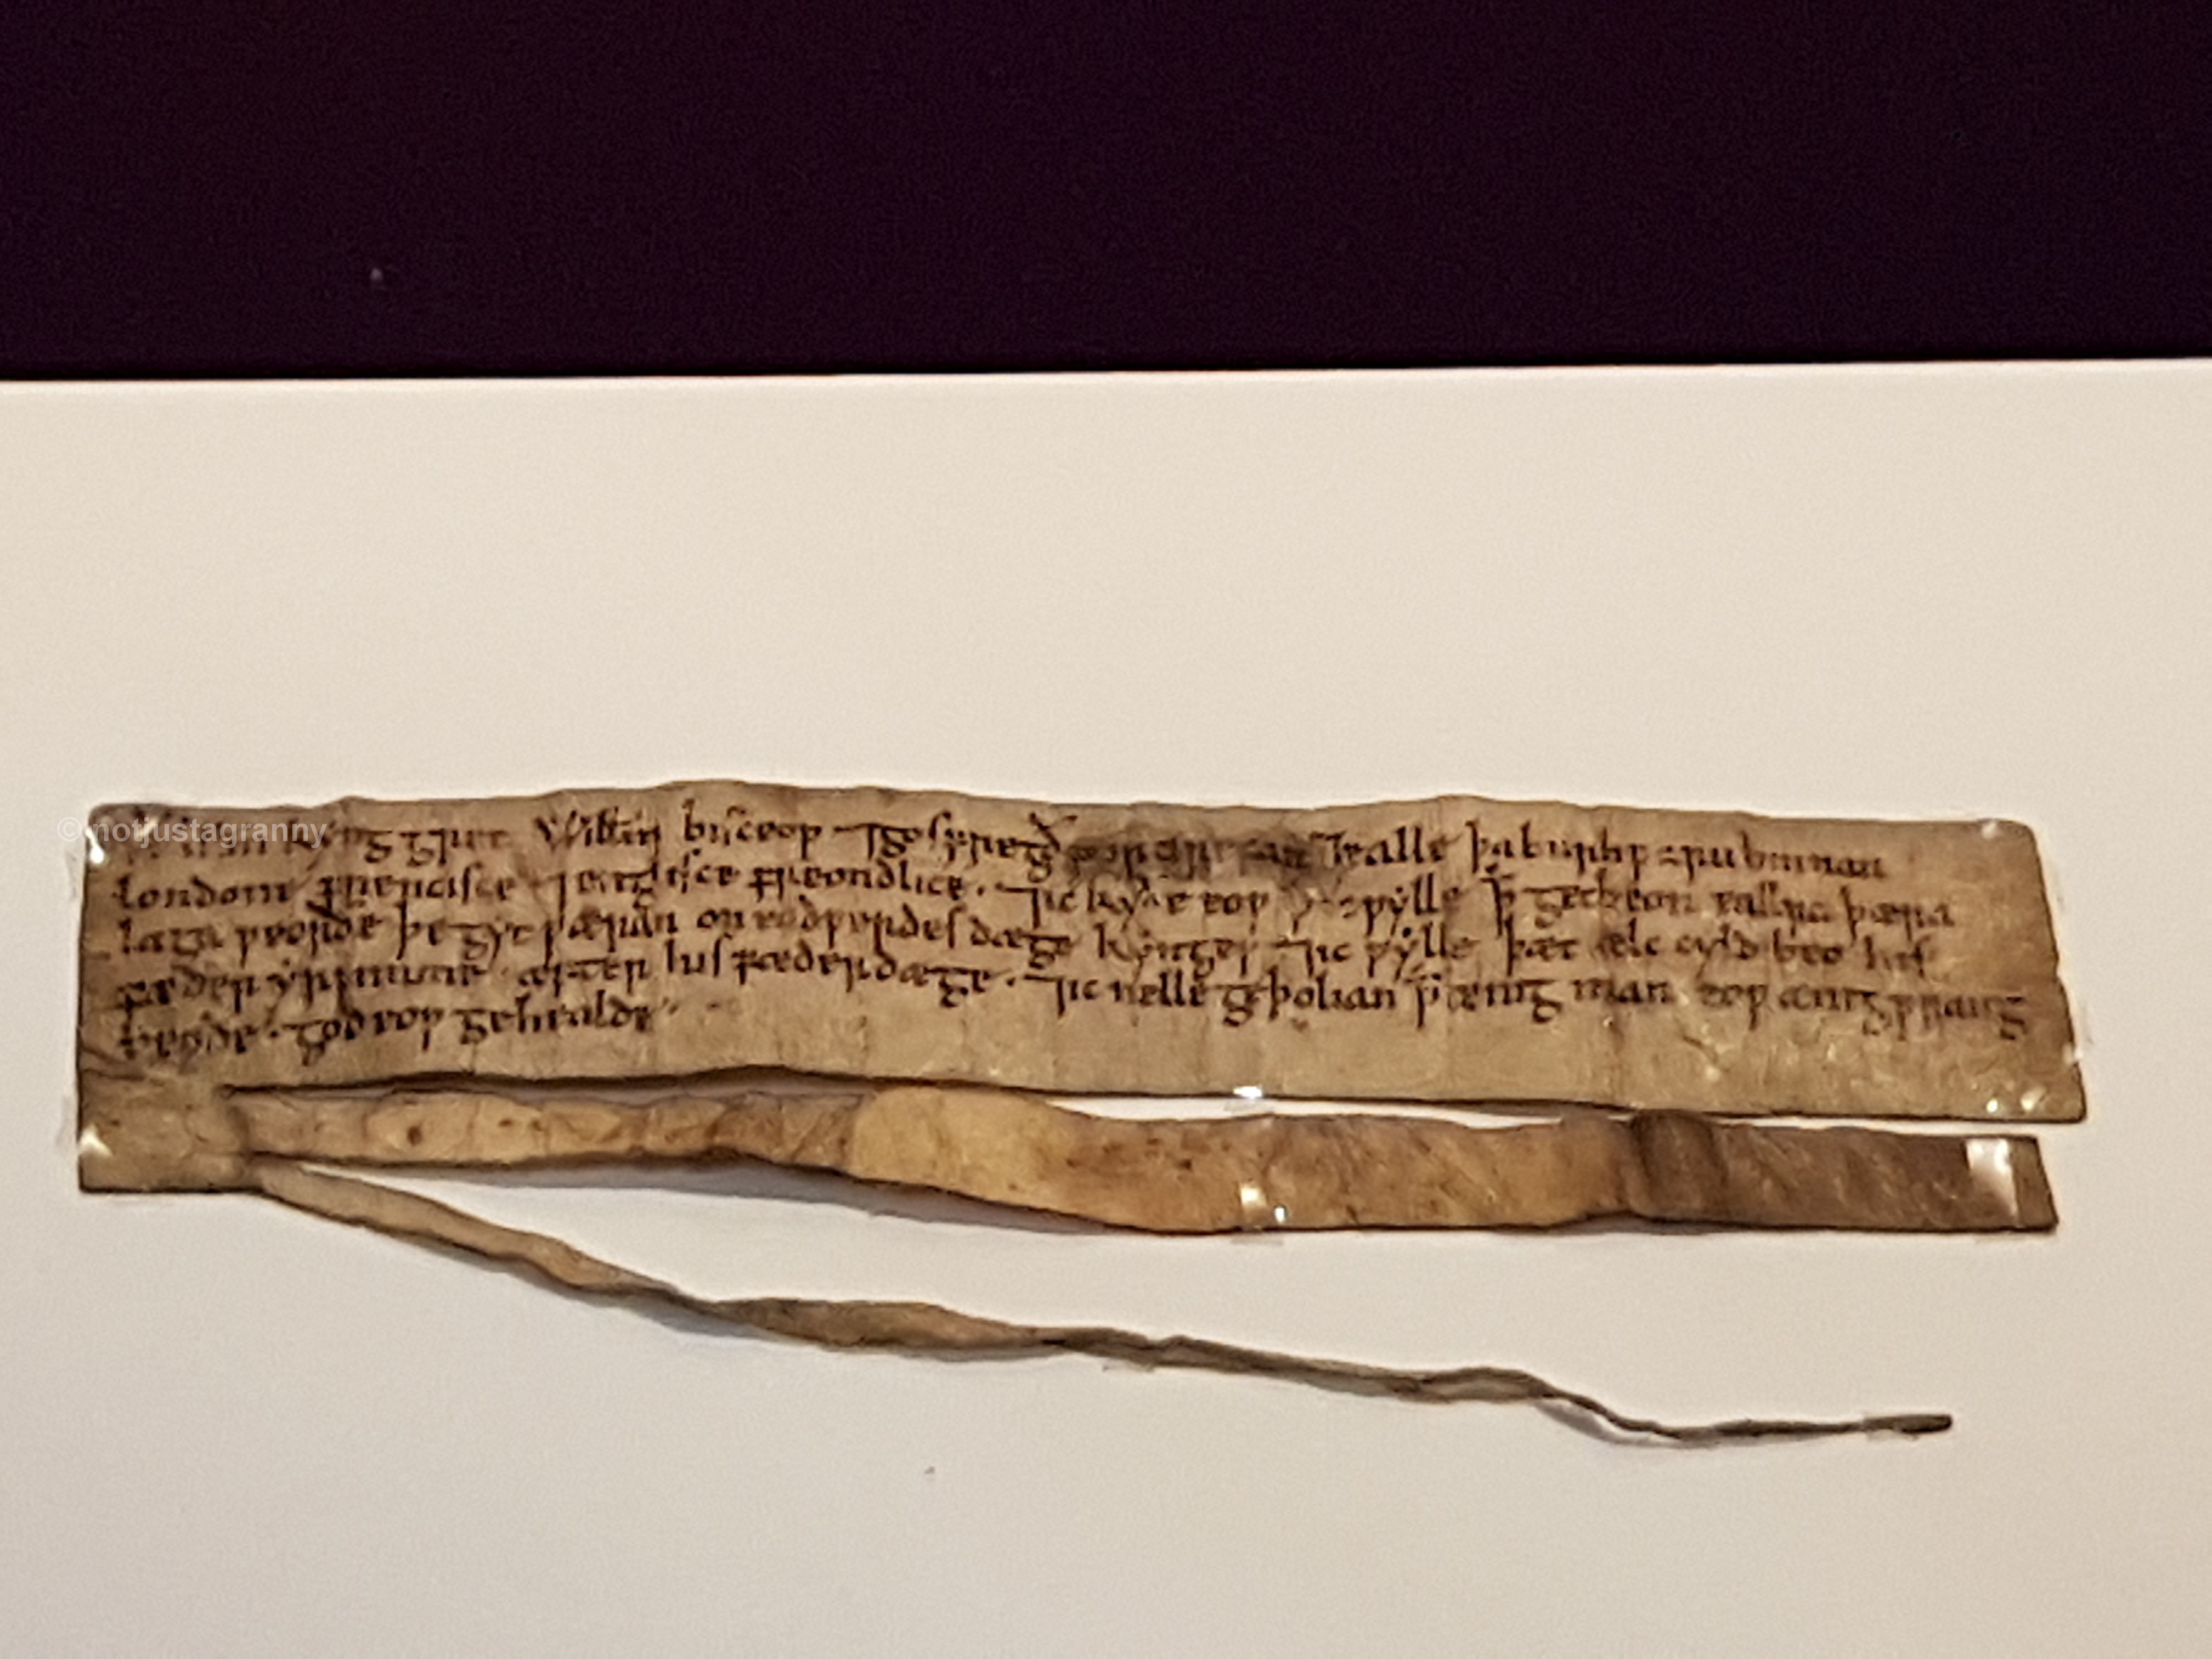 Willm kyng gret Willm bisceop ⁊ gosfregð portgerefan ⁊ ealle þa burhƿaru binnan
londone frencisce ⁊ englisce freondlice . ⁊ ic kyðe eoƿ þ̄ ic ƿylle þ̄ get beon eallra þæra
laga ƿeorðe þe gyt ƿæran on eadƿerdes dæge kynges . ⁊ ic ƿylle þæt ælc cyld beo his
fæder yrfnume . æfter his fæder dæge . ⁊ ic nelle geþolian þ̄ ænig man eoƿ ænig ƿrang
beode . god eoƿ gehealde .
©notjustagranny